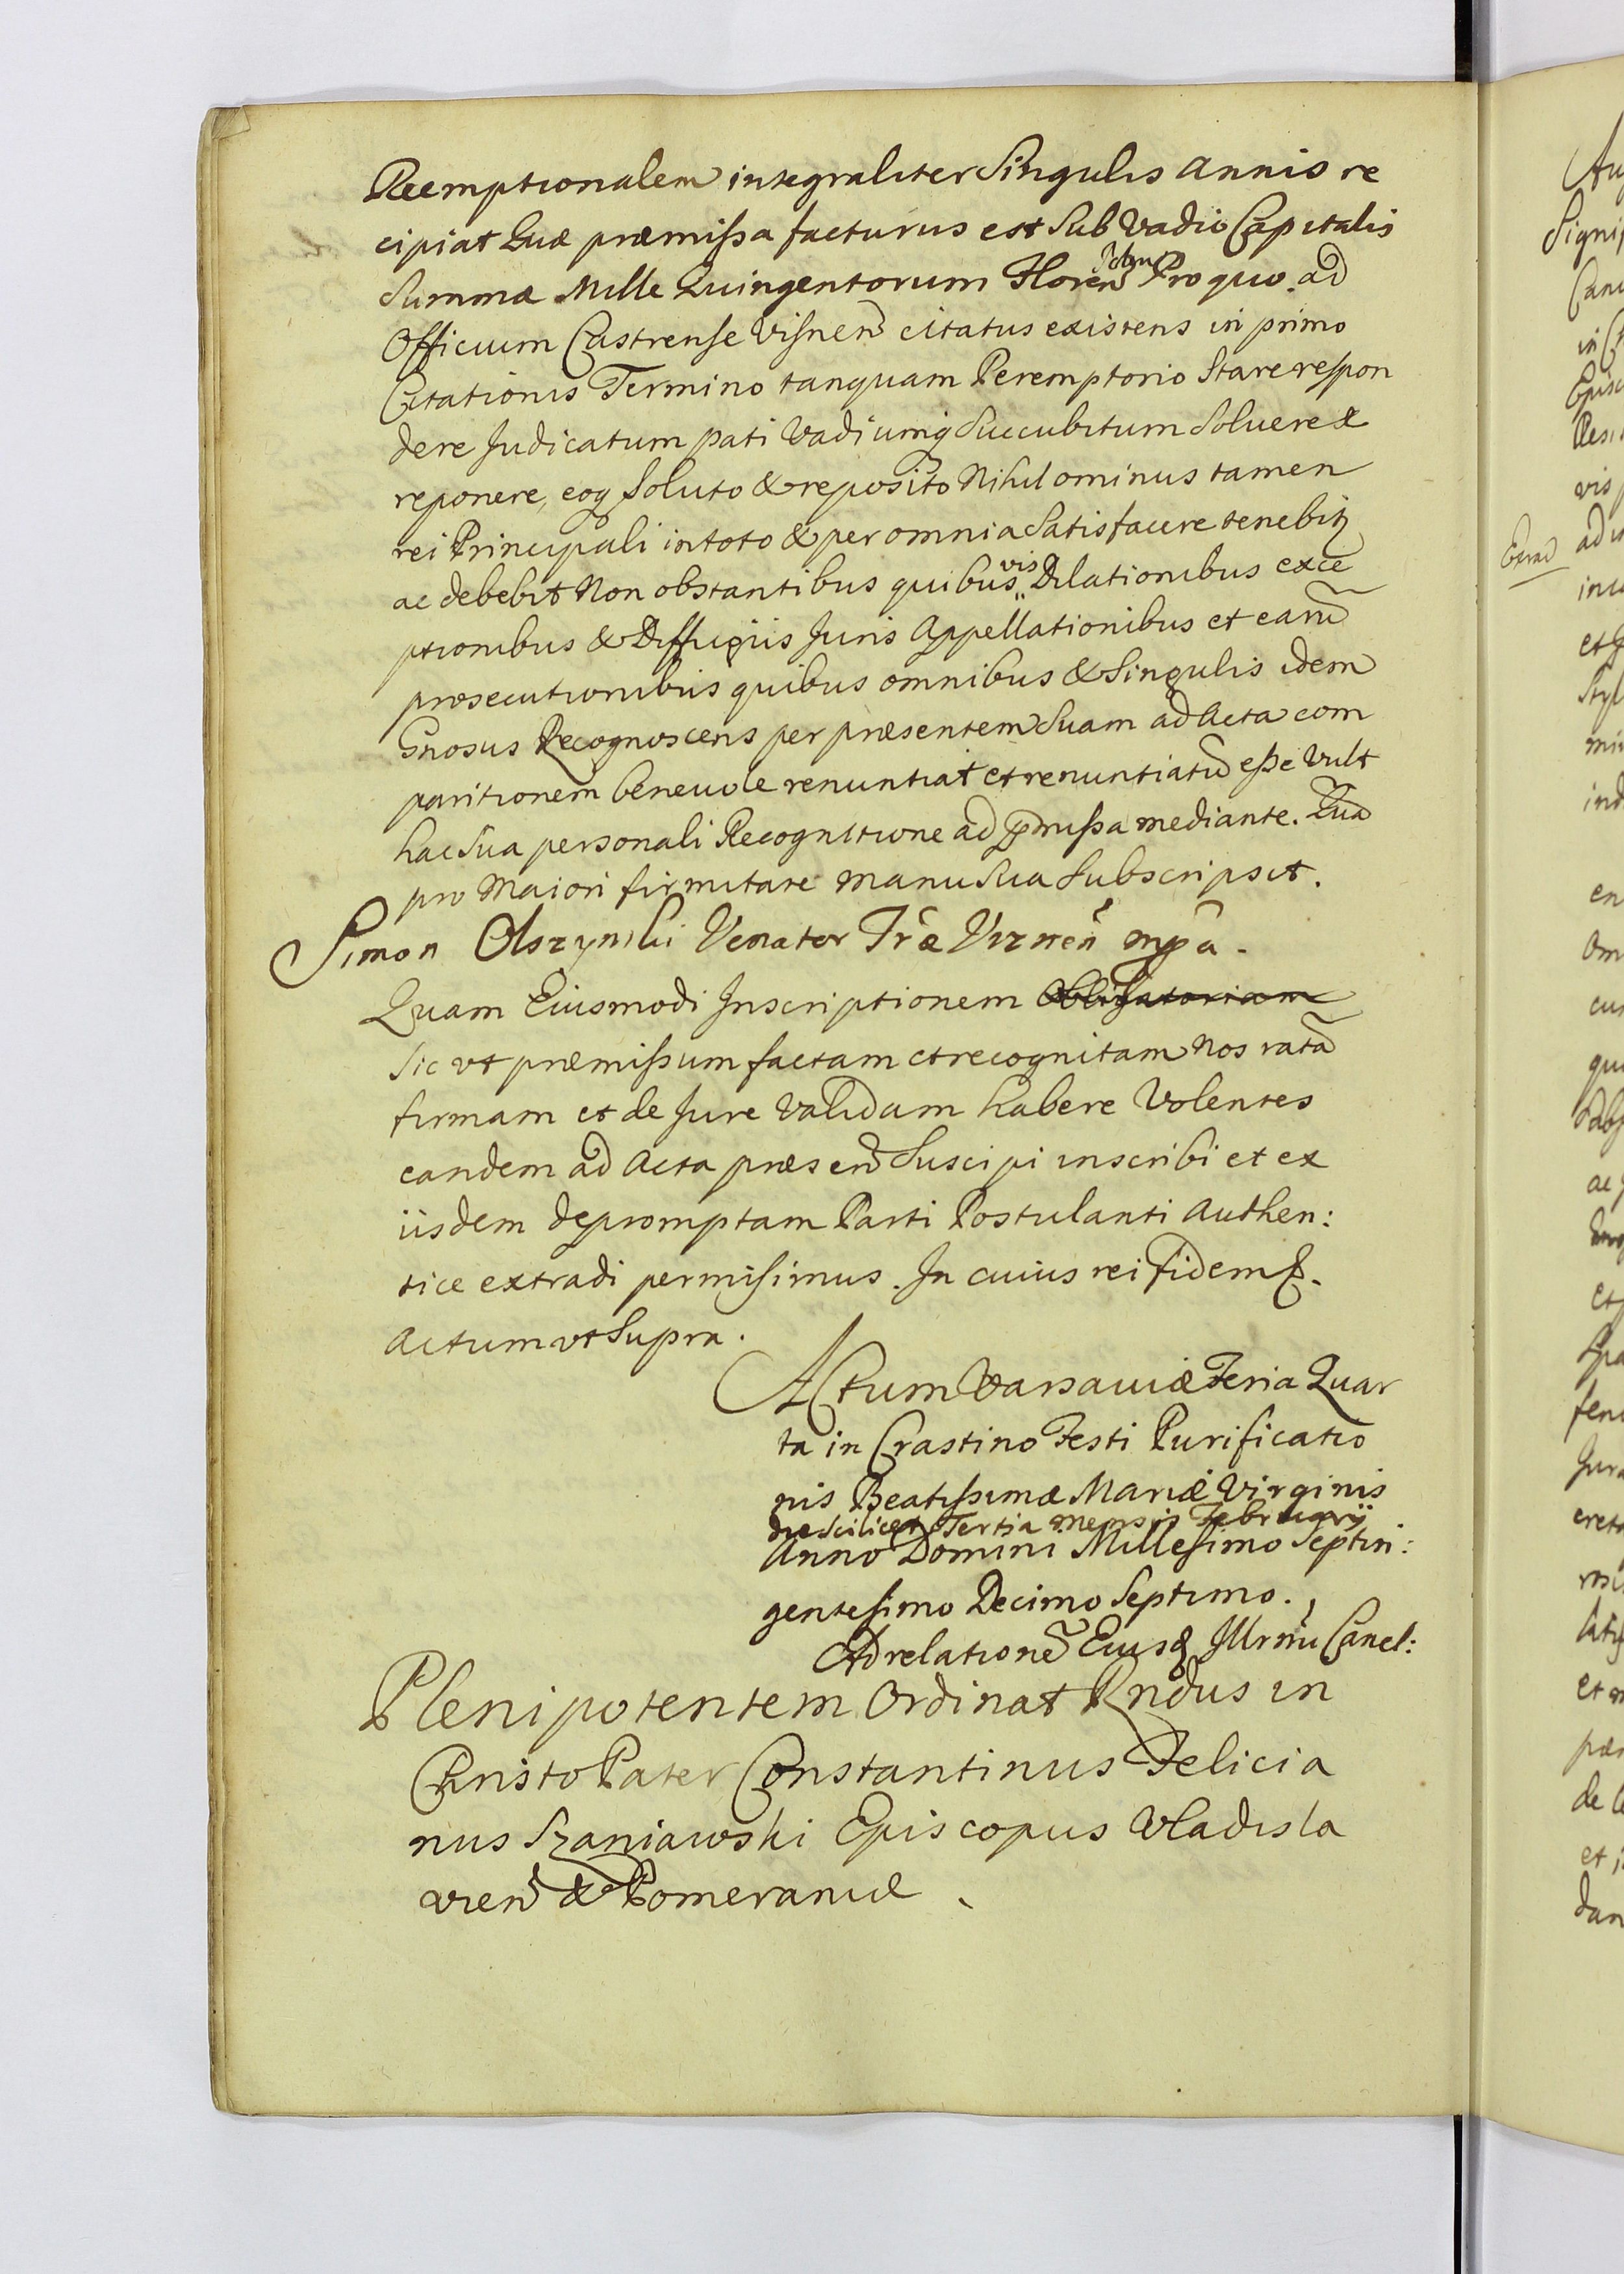 Reemptionalem integraliter Singulis annis re
cipiat Quæ præmissa facturus est Sub Vadio Capitalis
Summæ Mille Quingentorum Floren̄ Pro quo ad
Officium Castrense Visnen̄ citatus existens in primo
Citationis Termino tanquam Peremptorio Stare respon
dere Judicatum pati Vadiumq̨ Succubitum Soluere &
reponere, eoq̨ Soluto & reposito Nihilominus tamen
rei Principali in toto & per omnia Satisfacere tenebitꝫ
ac debebit Non obstantibus quibusvis Dilationibus exce
ptionibus & Diffugiis Juris Appellationibus et earū
prosecutionibus quibus omnibus & Singulis idem
Gnosus Recognoscens per præsentem Suam ad Acta com
paritionem beneuole renuntiat et renuntiatū esse Vult
hac Sua personali Recognitione ad p̄missa mediante. Quā
pro Maiori firmitate manu Sua Subscripsit.
Simon Olszynski Venator Tr̄æ Viznen̄ mp̄a.
Quam Eiusmodi Inscriptionem Obligatoriam
Sic vt præmissum factam et recognitam Nos ratā
firmam et de Jure Validam habere Volentes
eandem ad Acta præsen̄ Suscipi inscribi et ex
iisdem depromptam Parti Postulanti Authen:
tice extradi permisimus. In cuius rei fidem &.
Actum vt Supra.
Actum Varsauiæ Feria Quar
ta in Crastino Festi Purificatio
nis Beatissimæ Mariæ Virginis
die Scilicet Tertia Mensis Februarij
Anno Domini Millesimo Septin:
gentesimo Decimo Septimo.
Ad relationē Eiusd Illrmi Cancel:
Plenipotentem Ordinat Rndus in
Christo Pater Constantinus Felicia
nus Szaniawski Episcopus Vladisla
vien̄ & Pomeraniæ